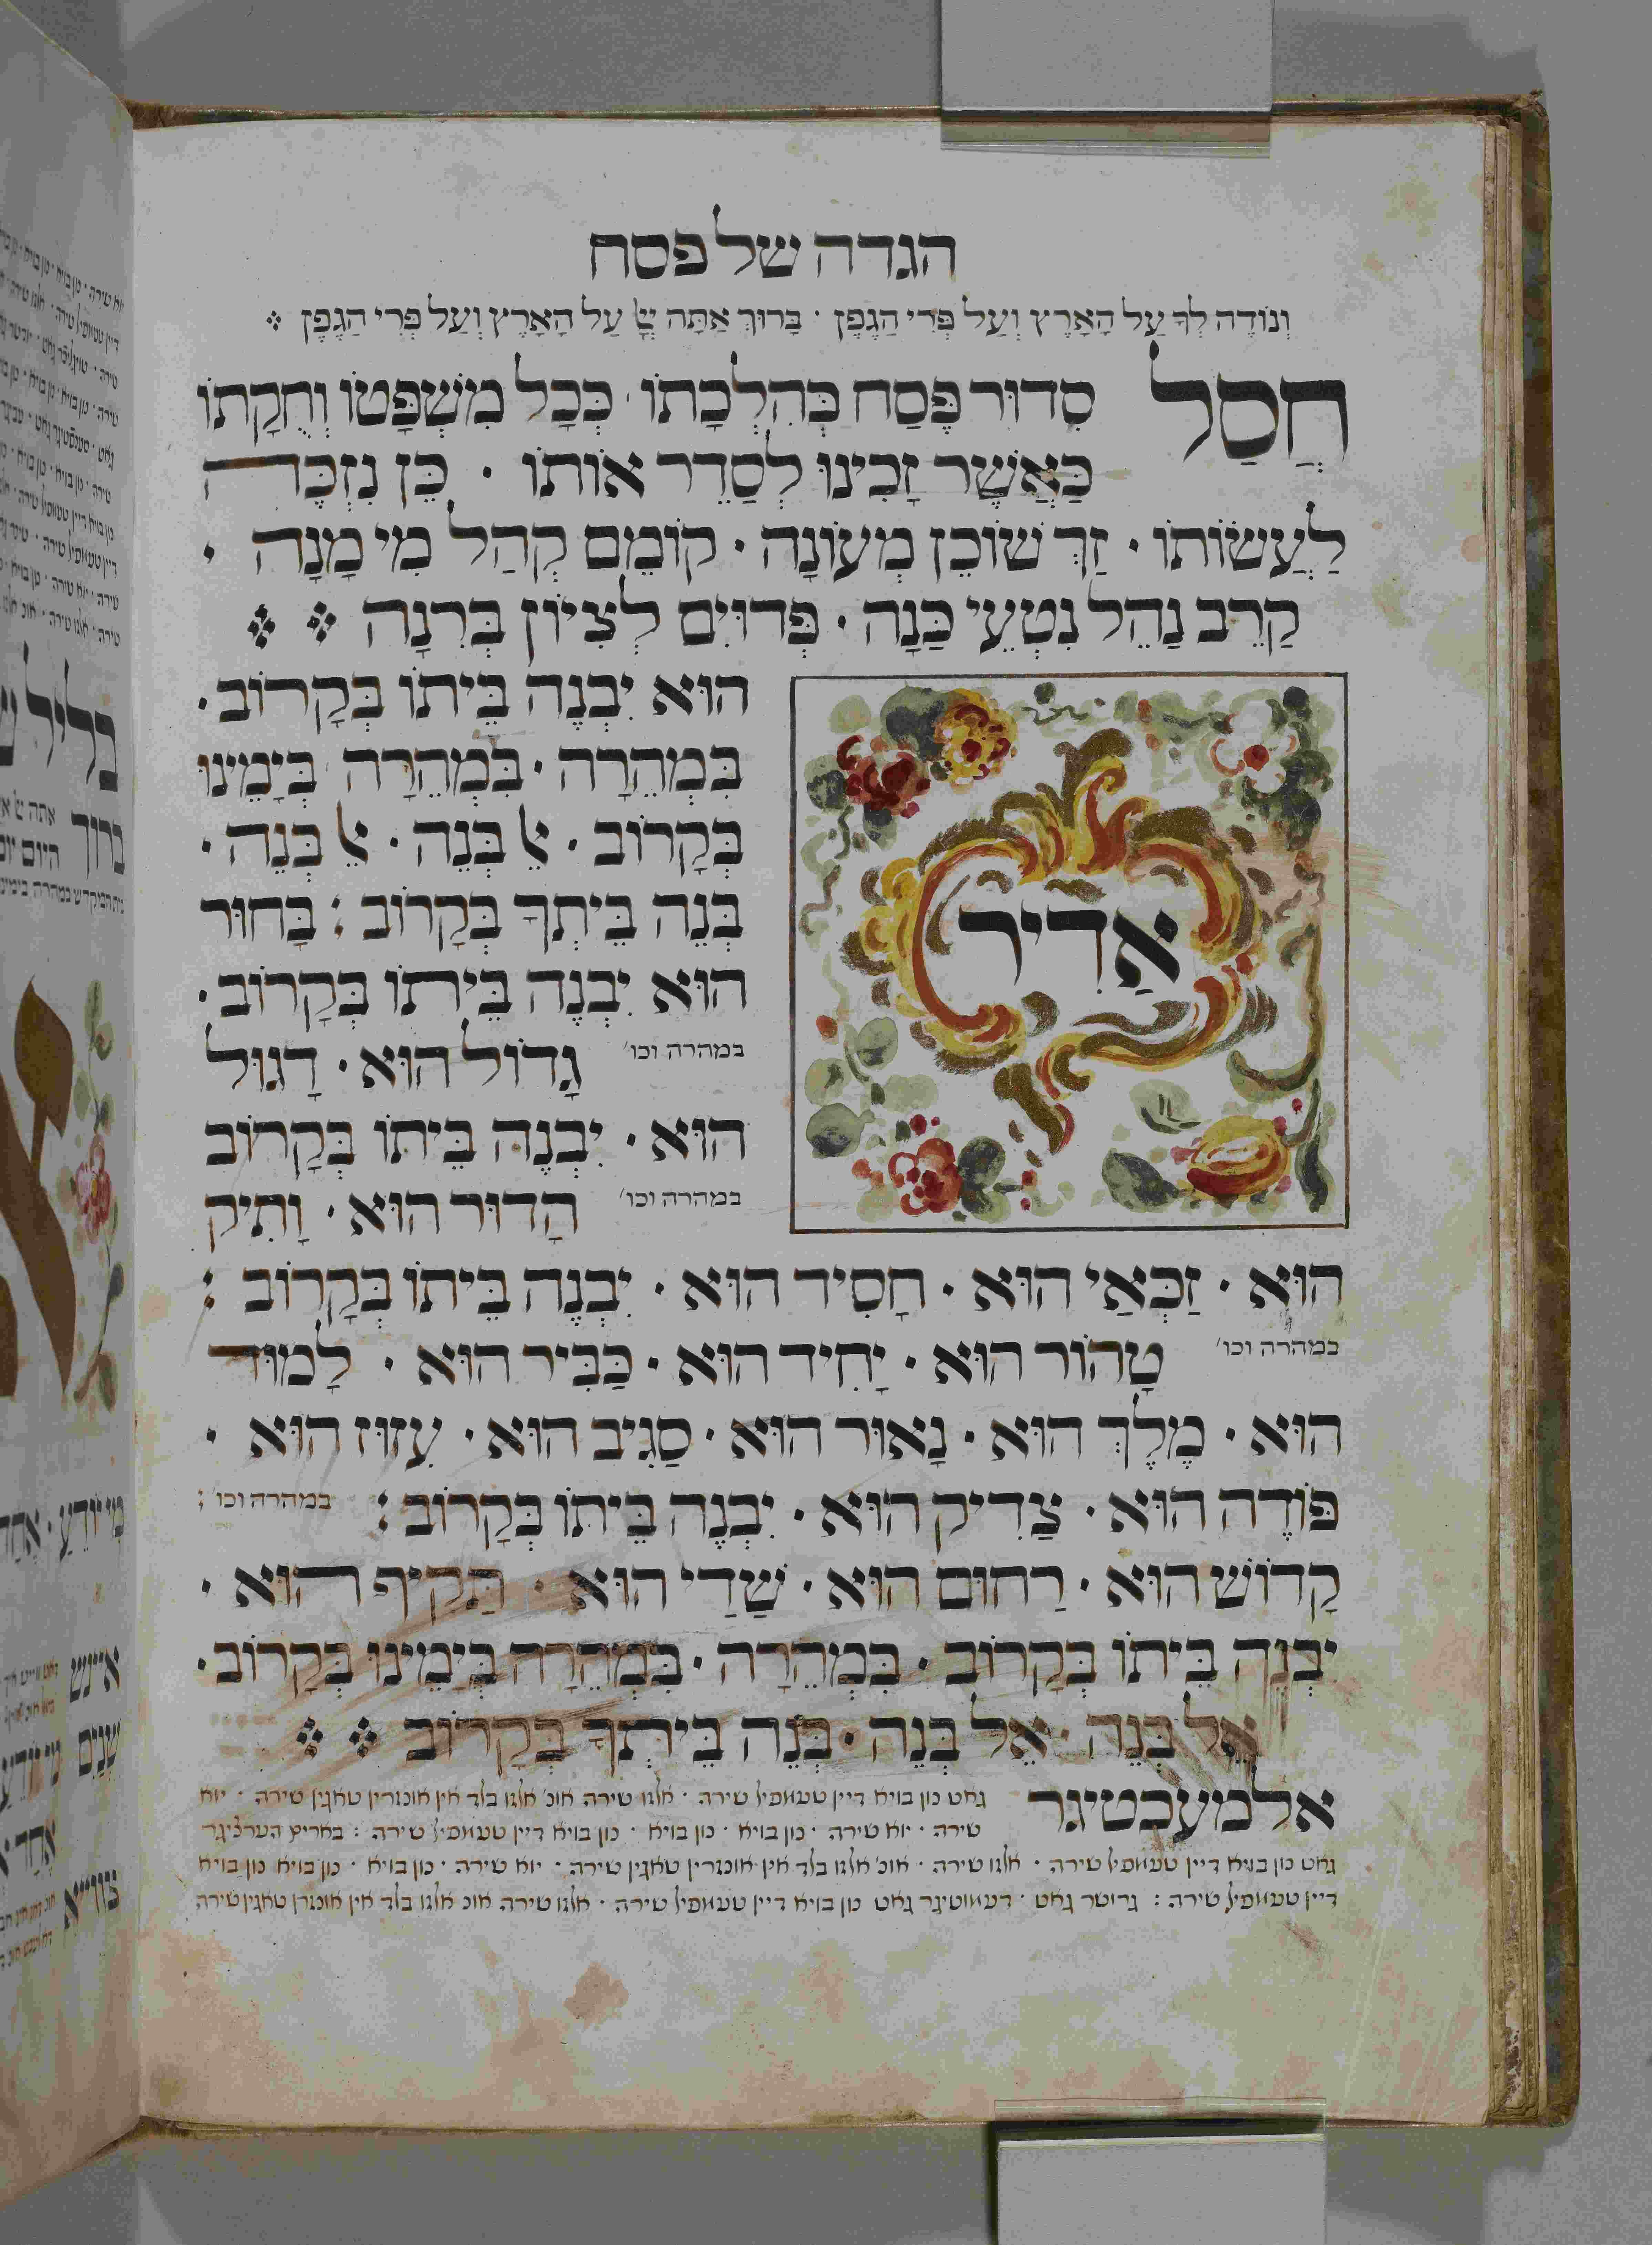 הגדה של פסח
וְנוֹדֶה לְךָ עַל הָאָרֶץ וְעַל פְּרִי הַגֶפֶן · בָּרוּךְ אַתָּה עַל הָאָרֶץ וְעַל פְּרִי הַגֶפֶן
חֲסַל סִדוּר פֶּסַח כְּהִלְכָתוֹ · כְּכָל מִשְׁפָּטוֹ וְחֻקָתוֹ
כַּאֲשֶׁר זָכִינוּ לְסַדֵר אוֹתוֹ · כֵּן נִזְכֶּה
לַעֲשׂוֹתוֹ · זַךְ שׁוֹכֵן מְעוֹנָה · קוֹמֵם קְהַל מִי מָנָה ·
קָרֵב נַהֵל נִטְעֵי כַּנָה · פְּדוּיִם לְצִיוֹן בְּרִנָה
אַדִיר
הוּא יִבְנֶה בֵּיתוֹ בְּקָרוֹב ·
בִּמְהֵרָה · בִּמְהֵרָה בְּיָמֵינוּ
בְּקָרוֹב · אֵל בְּנֵה · אֵל בְּנֵה ·
בְּנֵה בֵּיתְךָ בְּקָרוֹב : בָּחוּר
הוּא יִבְנֶה בֵּיתוֹ בְּקָרוֹב ·
במהרה וכו׳ גָדוֹל הוּא · דָגוּל
הוּא · יִבְנֶה בֵּיתוֹ בְּקָרוֹב
במהרה וכו׳ הָדוּר הוּא · וָתִיק
הוּא · זַכְּאַי הוּא · חָסִיד הוּא · יִבְנֶה בֵּיתוֹ בְּקָרוֹב :
במהרה וכו׳ טָהוֹר הוּא · יָחִיד הוּא · כַּבִּיר הוּא · לָמוּד
הוּא · מֶלֶךְ הוּא · נָאוֹר הוּא · סַגִיב הוּא · עִזוּז הוּא ·
פּוֹדֶה הוּא · צַדִיק הוּא · יִבְנֶה בֵּיתוֹ בְּקָרוֹב : במהרה וכו׳ :
קָדוֹשׁ הוּא · רַחוּם הוּא · שַׁדַי הוּא · תַּקִיף הוּא ·
יִבְנֶה בֵּיתוֹ בְּקָרוֹב · בִּמְהֵרָה · בִּמְהֵרָה בְּיָמֵינוּ בְּקָרוֹב ·
אֵל בְּנֵה · אֵל בְּנֵה · בְּנֵה בֵּיתְךָ בְּקָרוֹב
אלמעכטיגר גאט נון בויא דיין טעמפיל שירה · אלזו שירה אונ׳ אלזו בלד אין אונזרין טאגין שירה · יוא
שירה · יוא שירה · נון בויא · נון בויא · נון בויא דיין טעמפיל שירה : בארימ הערציגר
גאט נון בויא דיין טעמפיל שירה · אלזו שירה · אונ׳ אלזו בלד אין אונזרין טאגין שירה · יוא שירה · נון בויא · נון בויא נון בויא
דיין טעמפיל שירה : גרוטר גאט · דעמוטיגר גאט נון בויא דיין טעמפיל שירה · אלזו שירה אונ אלזו בלד אין אונזרן טאגין שירה